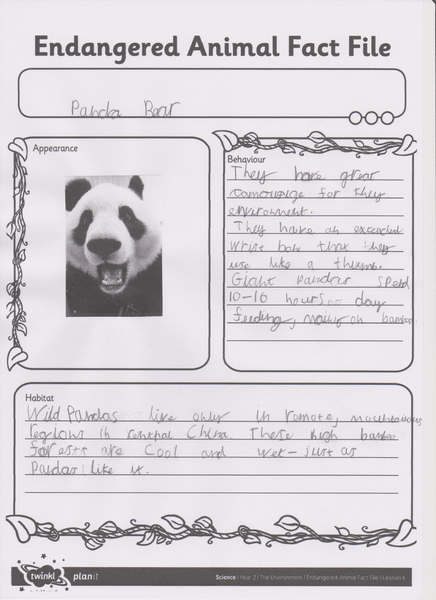 Endangered Animal Fact File
Panda Bear
Appearance
Behaviour
They have great
for they
environment.
They have an
bone that they
use like a thumb.
Giant pandas spend
10-16 hours a day
feeding, mainly on bamboo.
Habitat
Wild Pandas live only in remote, mountainous
regions in central China. These high bamboo
forests are cool and wet - just as
Pandas like it.
twinkl planit
Science | Year 2 | The Environment | Endangered Animal Fact File | Lesson 6